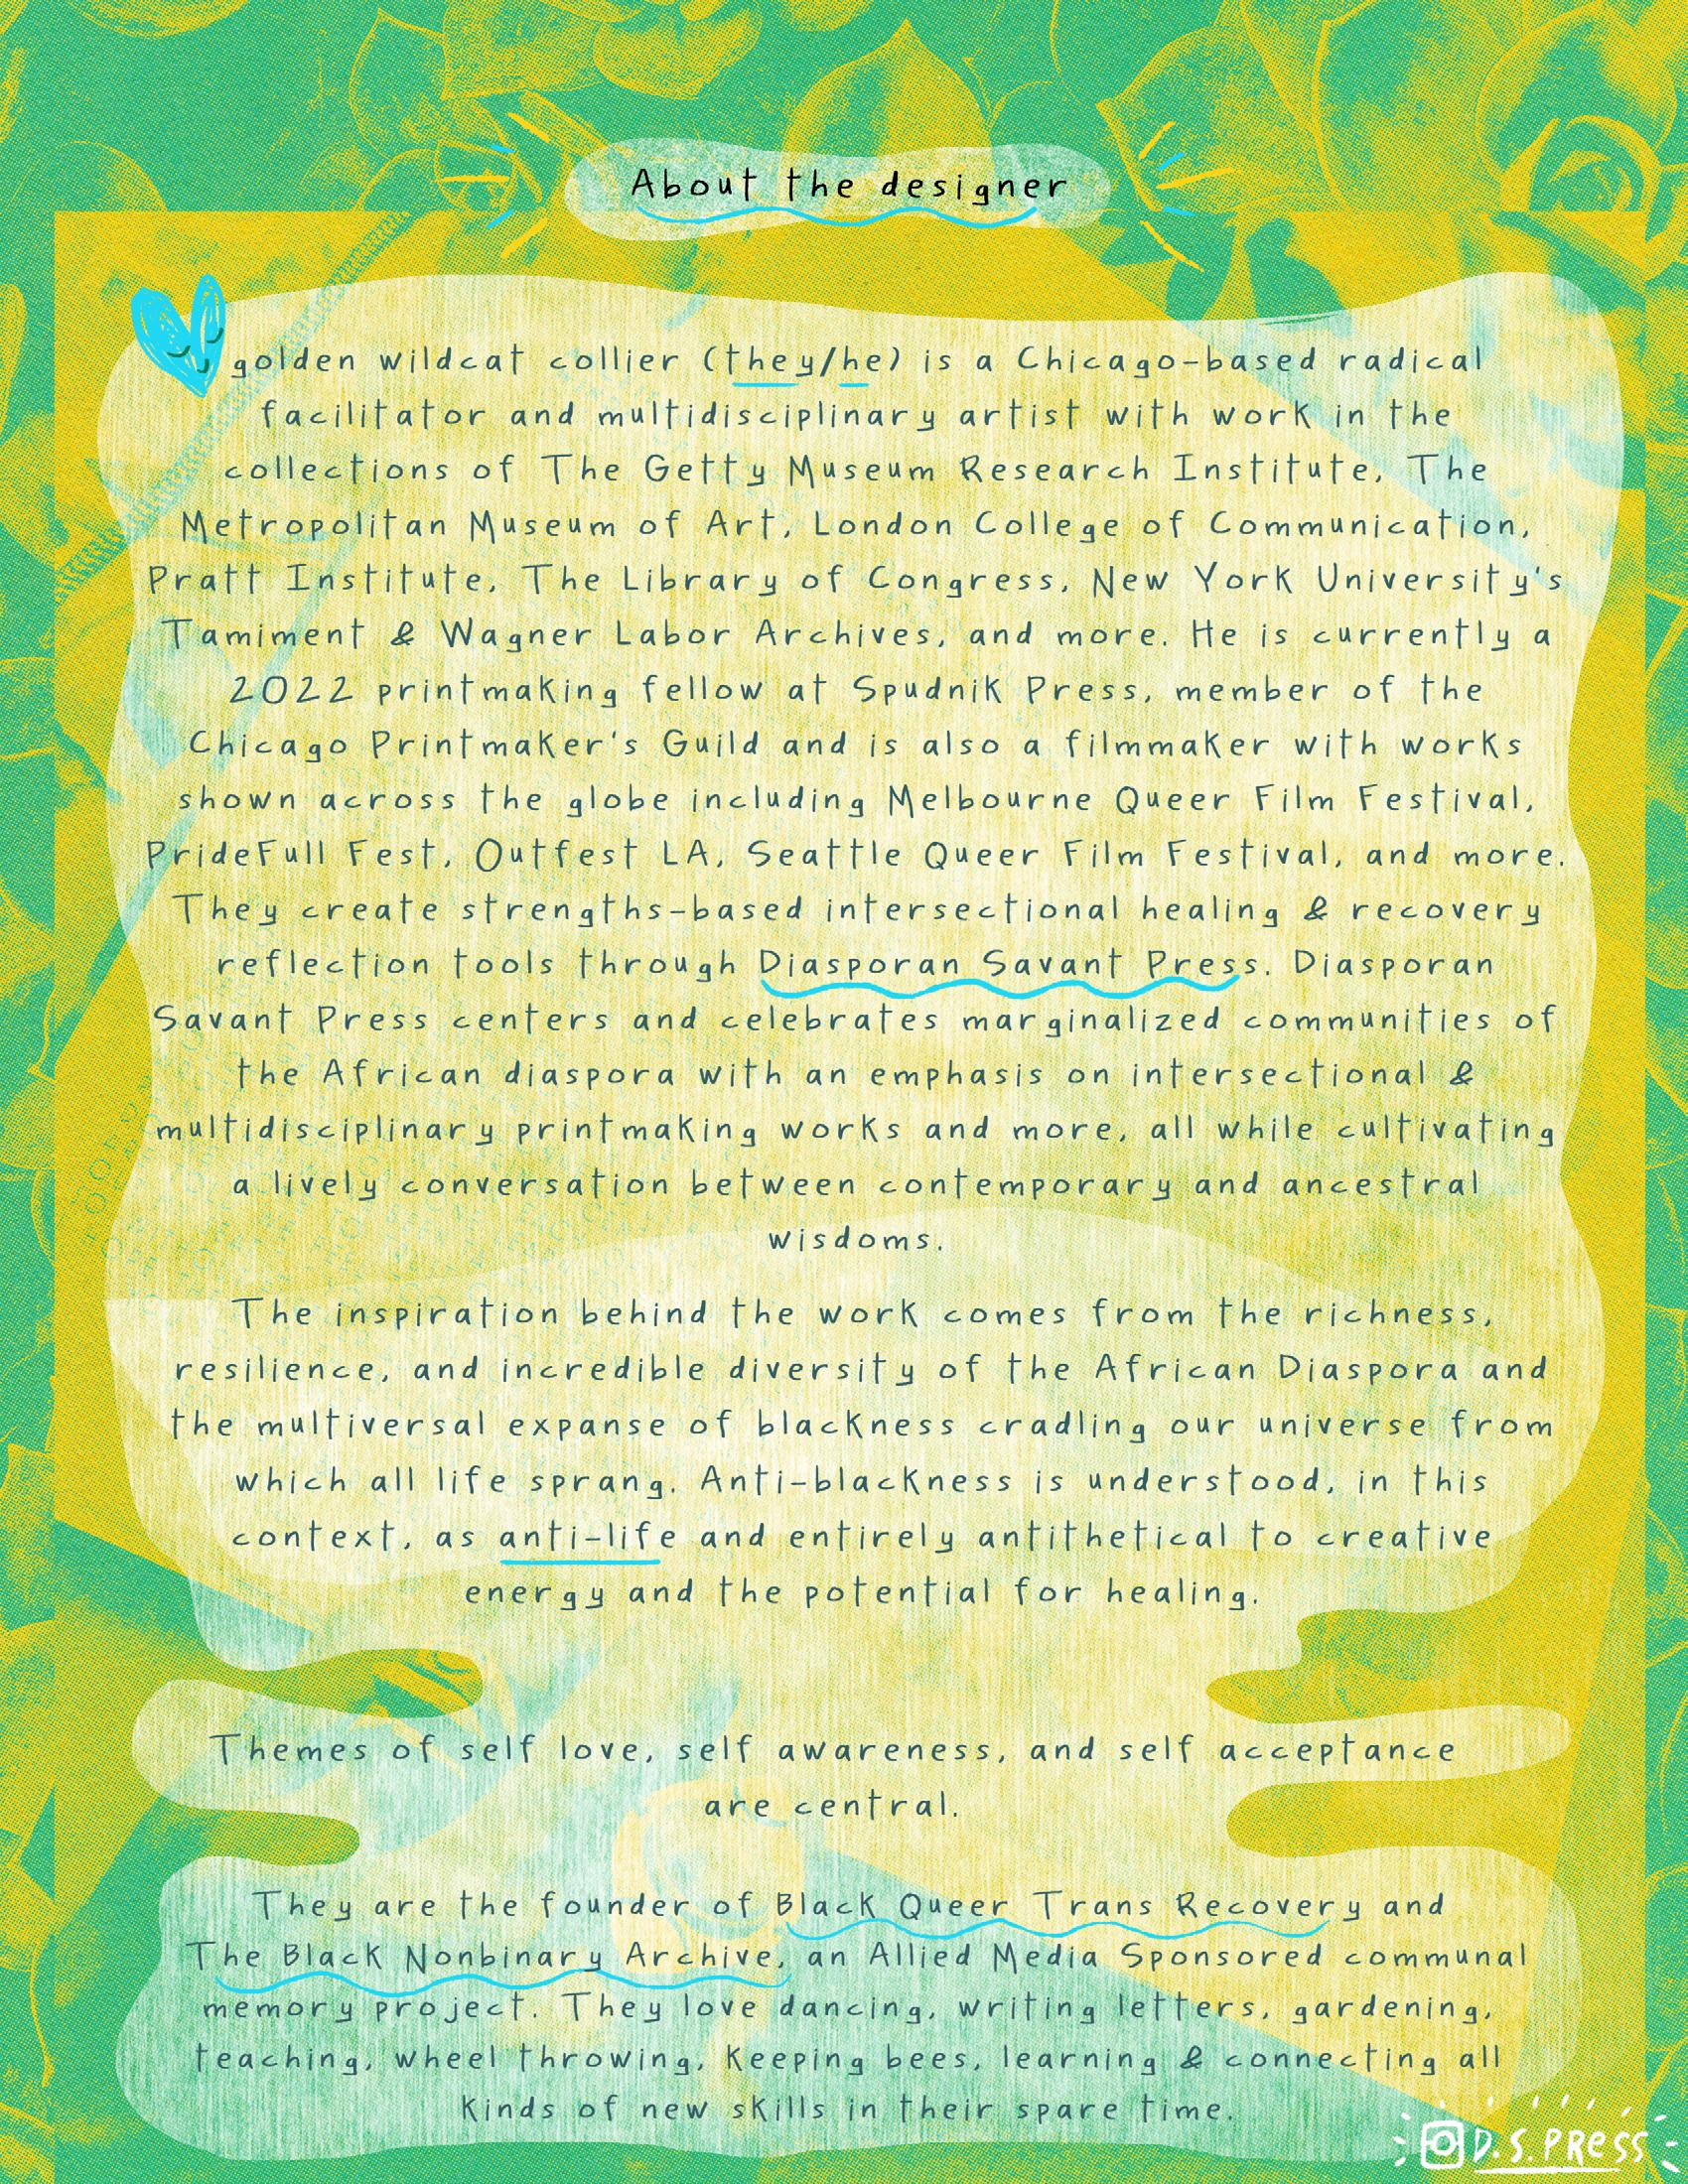 About the designer
golden wildcat collier (they/he) is a Chicago-based radical
facilitator and multidisciplinary artist with work in the
collections of The Getty Museum Research Institute, The
Metropolitan Museum of Art, London College of Communication,
Pratt Institute, The Library of Congress, New York University's
Tamiment & Wagner Labor Archives, and more. He is currently a
2022 printmaking fellow at Spudnik Press, member of the
Chicago Printmaker's Guild and is also a filmmaker with works
shown across the globe including Melbourne Queer Film Festival,
PrideFull Fest, Outfest LA, Seattle Queer Film Festival, and more.
They create strengths-based intersectional healing & recovery
reflection tools through Diasporan Savant Press. Diasporan
Savant Press centers and celebrates marginalized communities of
the African diaspora with an emphasis on intersectional &
multidisciplinary printmaking works and more, all while cultivating
a lively conversation between contemporary and ancestral
wisdoms.
The inspiration behind the work comes from the richness,
resilience, and incredible diversity of the African Diaspora and
the multiversal expanse of blackness cradling our universe from
which all life sprang. Anti-blackness is understood, in this
context, as anti-life and entirely antithetical to creative
energy and the potential for healing.
Themes of self love, self awareness, and self acceptance
are central.
They are the founder of Black Queer Trans Recovery and
The Black Nonbinary Archive, an Allied Media Sponsored communal
memory project. They love dancing, writing letters, gardening,
teaching, wheel throwing, keeping bees, learning & connecting all
kinds of new skills in their spare time.
D.S.PRESS